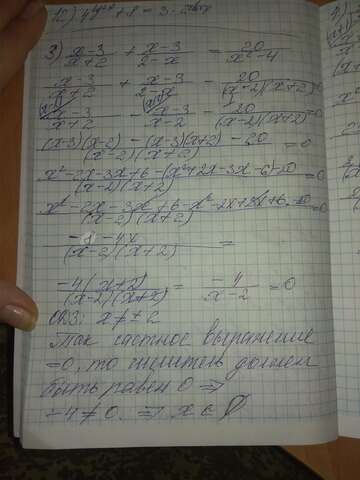 3) (x-3)/(x+2) + (x-3)/(2-x) = 20/(x²-4)
(x-3)/(x+2) + (x-3)/(2-x) - 20/((x-2)(x+2)) = 0
(x-3)/(x+2) - (x-3)/(x-2) - 20/((x-2)(x+2)) = 0
((x-3)(x-2) - (x-3)(x+2) - 20)/((x-2)(x+2)) = 0
(x²-2x-3x+6-(x²+2x-3x-6)-20)/((x-2)(x+2)) = 0
(x²-2x-3x+6-x²-2x+3x+6-20)/((x-2)(x+2)) = 0
(-8-4x)/((x-2)(x+2)) =
-4(x+2)/((x-2)(x+2)) = -4/(x-2) = 0
ОДЗ: x ≠ ± 2
Так частное выражение
=0, то числитель должен
быть равен 0 ⇒
-4 ≠ 0. ⇒ x ∈ ∅